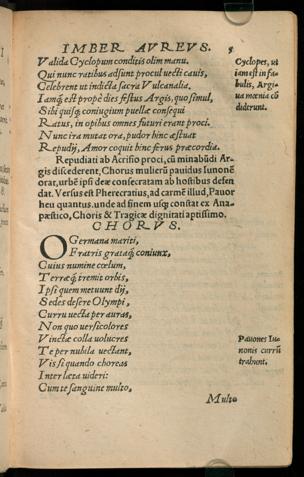 IMBER AVREVS. 5
Valida Cyclopum conditis olim manu.
Qui nunc ratibus adsunt procul uecti cauis,
Celebrent ut indicta sacra Vulcanalia.
Iamq; est prope dies festus Argis, quo simul,
Sibi quisq; coniugium puellæ consequi
Ratus, in opibus omnes futuri erant proci.
Nunc ira mutat ora, pudor hinc æstuat
Repudij, Amor coquit hinc ferus præcordia.
Cyclopes, ut
iam est in fa-
bulis, Argi-
ua mœnia cō
diderunt.
Repudiati ab Acrisio proci, cū minabūdi Ar-
gis discederent, Chorus mulierū pauidus Iunonē
orat, urbē ipsi deæ consecratam ab hostibus defen
dat. Versus est Pherecratius, ad carmē illud, Pauor
heu quantus. unde ad finem usq; constat ex Ana-
pæstico, Choris & Tragicæ dignitati aptissimo.
CHORVS.
O Germana mariti,
Fratris grataq; coniunx,
Cuius numine cœlum,
Terræq; tremit orbis,
Ipsi quem metuunt dij,
Sedes desere Olympi,
Curru uecta per auras,
Non quo uersicolores
Vinctæ colla uolucres
Te per nubila uectant,
Vis si quando choreas
Inter læta uideri:
Cum te sanguine multo,
Pauones Iu-
nonis currū
trahunt.
Multo